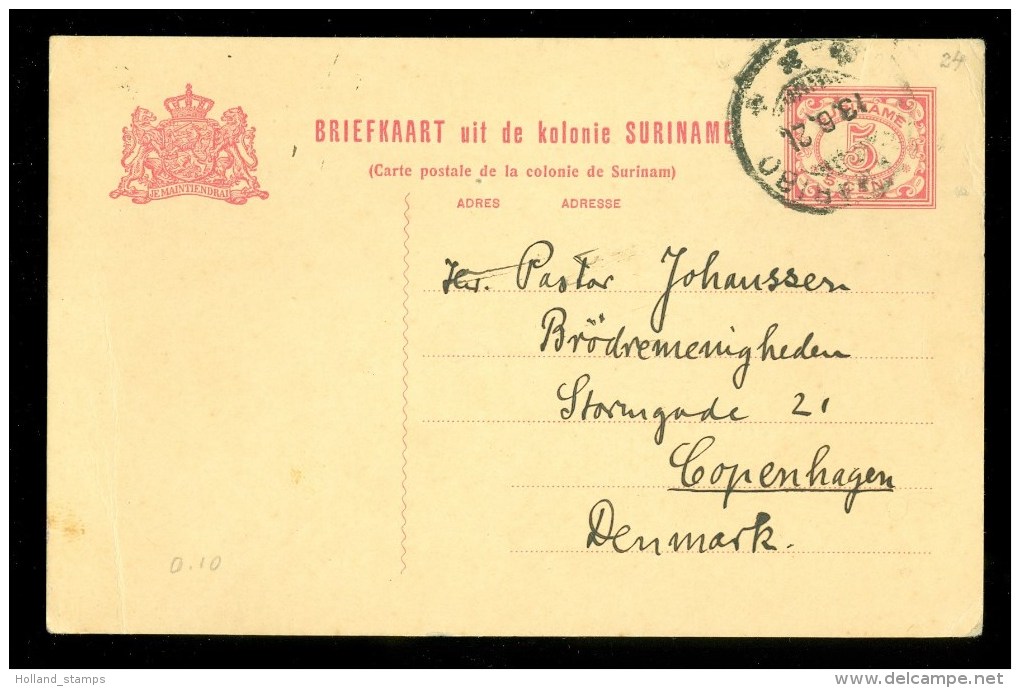 24
BRIEFKAART uit de kolonie SURINAME
(Carte postale de la colonie de Surinam)
ADRES ADRESSE
JE MAINTIENDRAI
5
CEN
Hr. Pastor Johanssen
Brödremenigheden
Stormgade 21
Copenhagen
Denmark.
0.10
Holland_stamps
delcampe.net